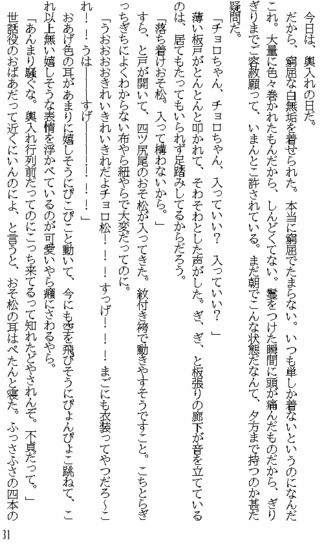 今日は、輿入れの日だ。
だから、窮屈な白無垢を着せられた。本当に窮屈でたまらない。いつも単しか着ないというのになんだ
これ。大量に色々巻かれたもんだから、しんどくてない。鬘をつけた瞬間に頭が痛んだものだから、ぎり
ぎりまでご容赦願って、いまんとこ許されている。まだ朝でこんな状態だなんて、夕方まで持つのか甚だ
疑問だ。
「チョロちゃん、チョロちゃん、入っていい？　入っていい？」
薄い板戸がとんとんと叩かれて、そわそわとした声がした。ぎ、ぎ、と板張りの廊下が音を立てている
のは、居てもたってもいられず足踏みしてるからだろう。
「落ち着けおそ松。入って構わないから。」
すら、と戸が開いて、四ツ尻尾のおそ松が入ってきた。紋付き袴で動きやすそうですこと。こちとらぎ
っちぎちによくわからない布やら紐やらで大変だってのに。
「うおおおおきれいきれいきれいだよチョロ松――！――！すっげ――！――！まごにも衣装ってやつだろ～こ
れ！――！うは――――すげ――――！――！」
おあげ色の耳があまりに嬉しそうにぴこぴこと動いて、今にも空を飛びそうにぴょんぴょこ跳ねて、こ
れ以上無い嬉しそうな表情を浮かべているのが可愛いやら癪にさわるやら。
「あんまり騒ぐな。輿入れ行列前だってのにこっち来てるって知れたどやされんぞ。不貞だって。」
世話役のおばあだって近くにいんのによ、と言うと、おそ松の耳はぺたんと寝た。ふっさふさの四本の
31